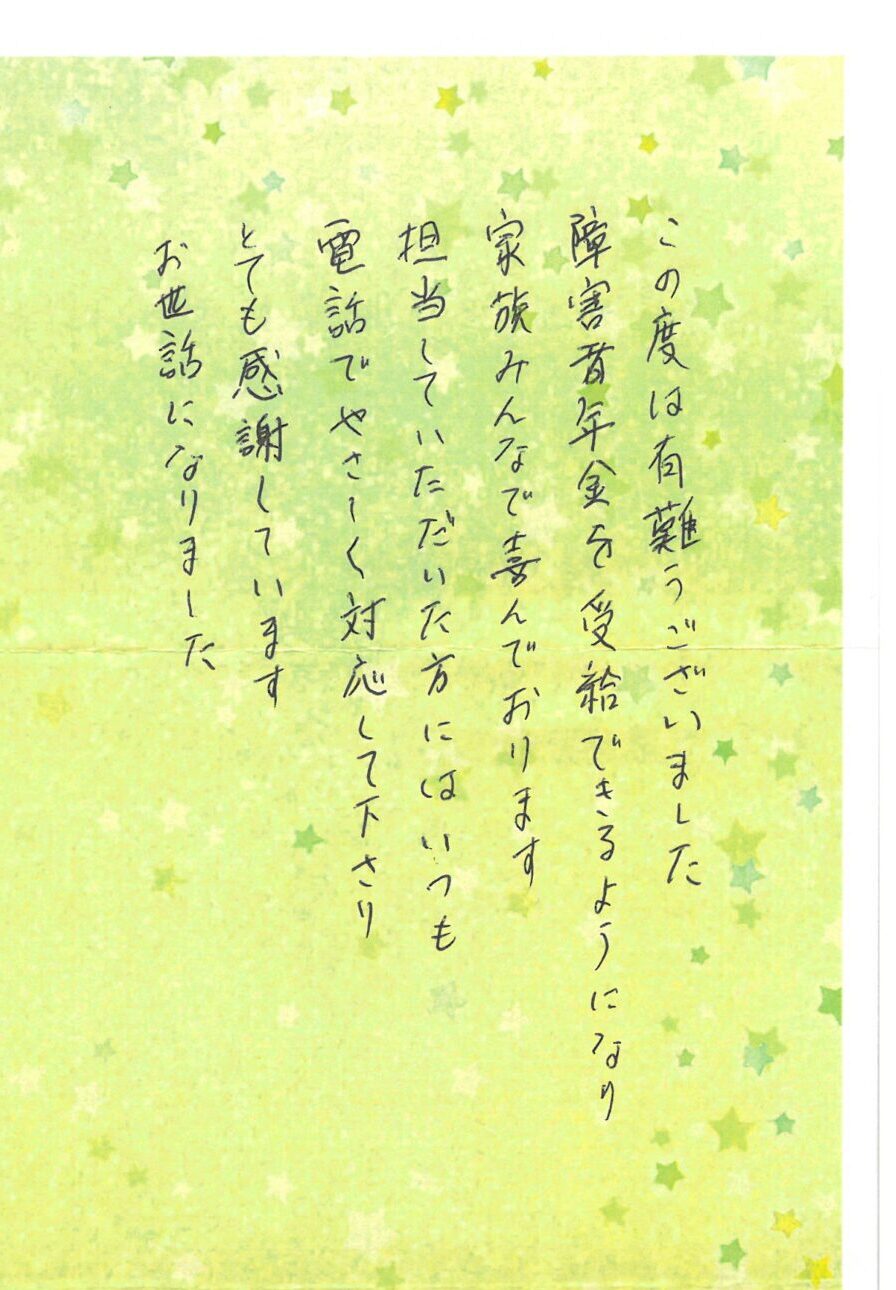 この度は有難うございました
障害者年金を受給できるようになり
家族みんなで喜んでおります
担当していただいた方にはいつも
電話でやさしく対応して下さり
とても感謝しています
お世話になりました